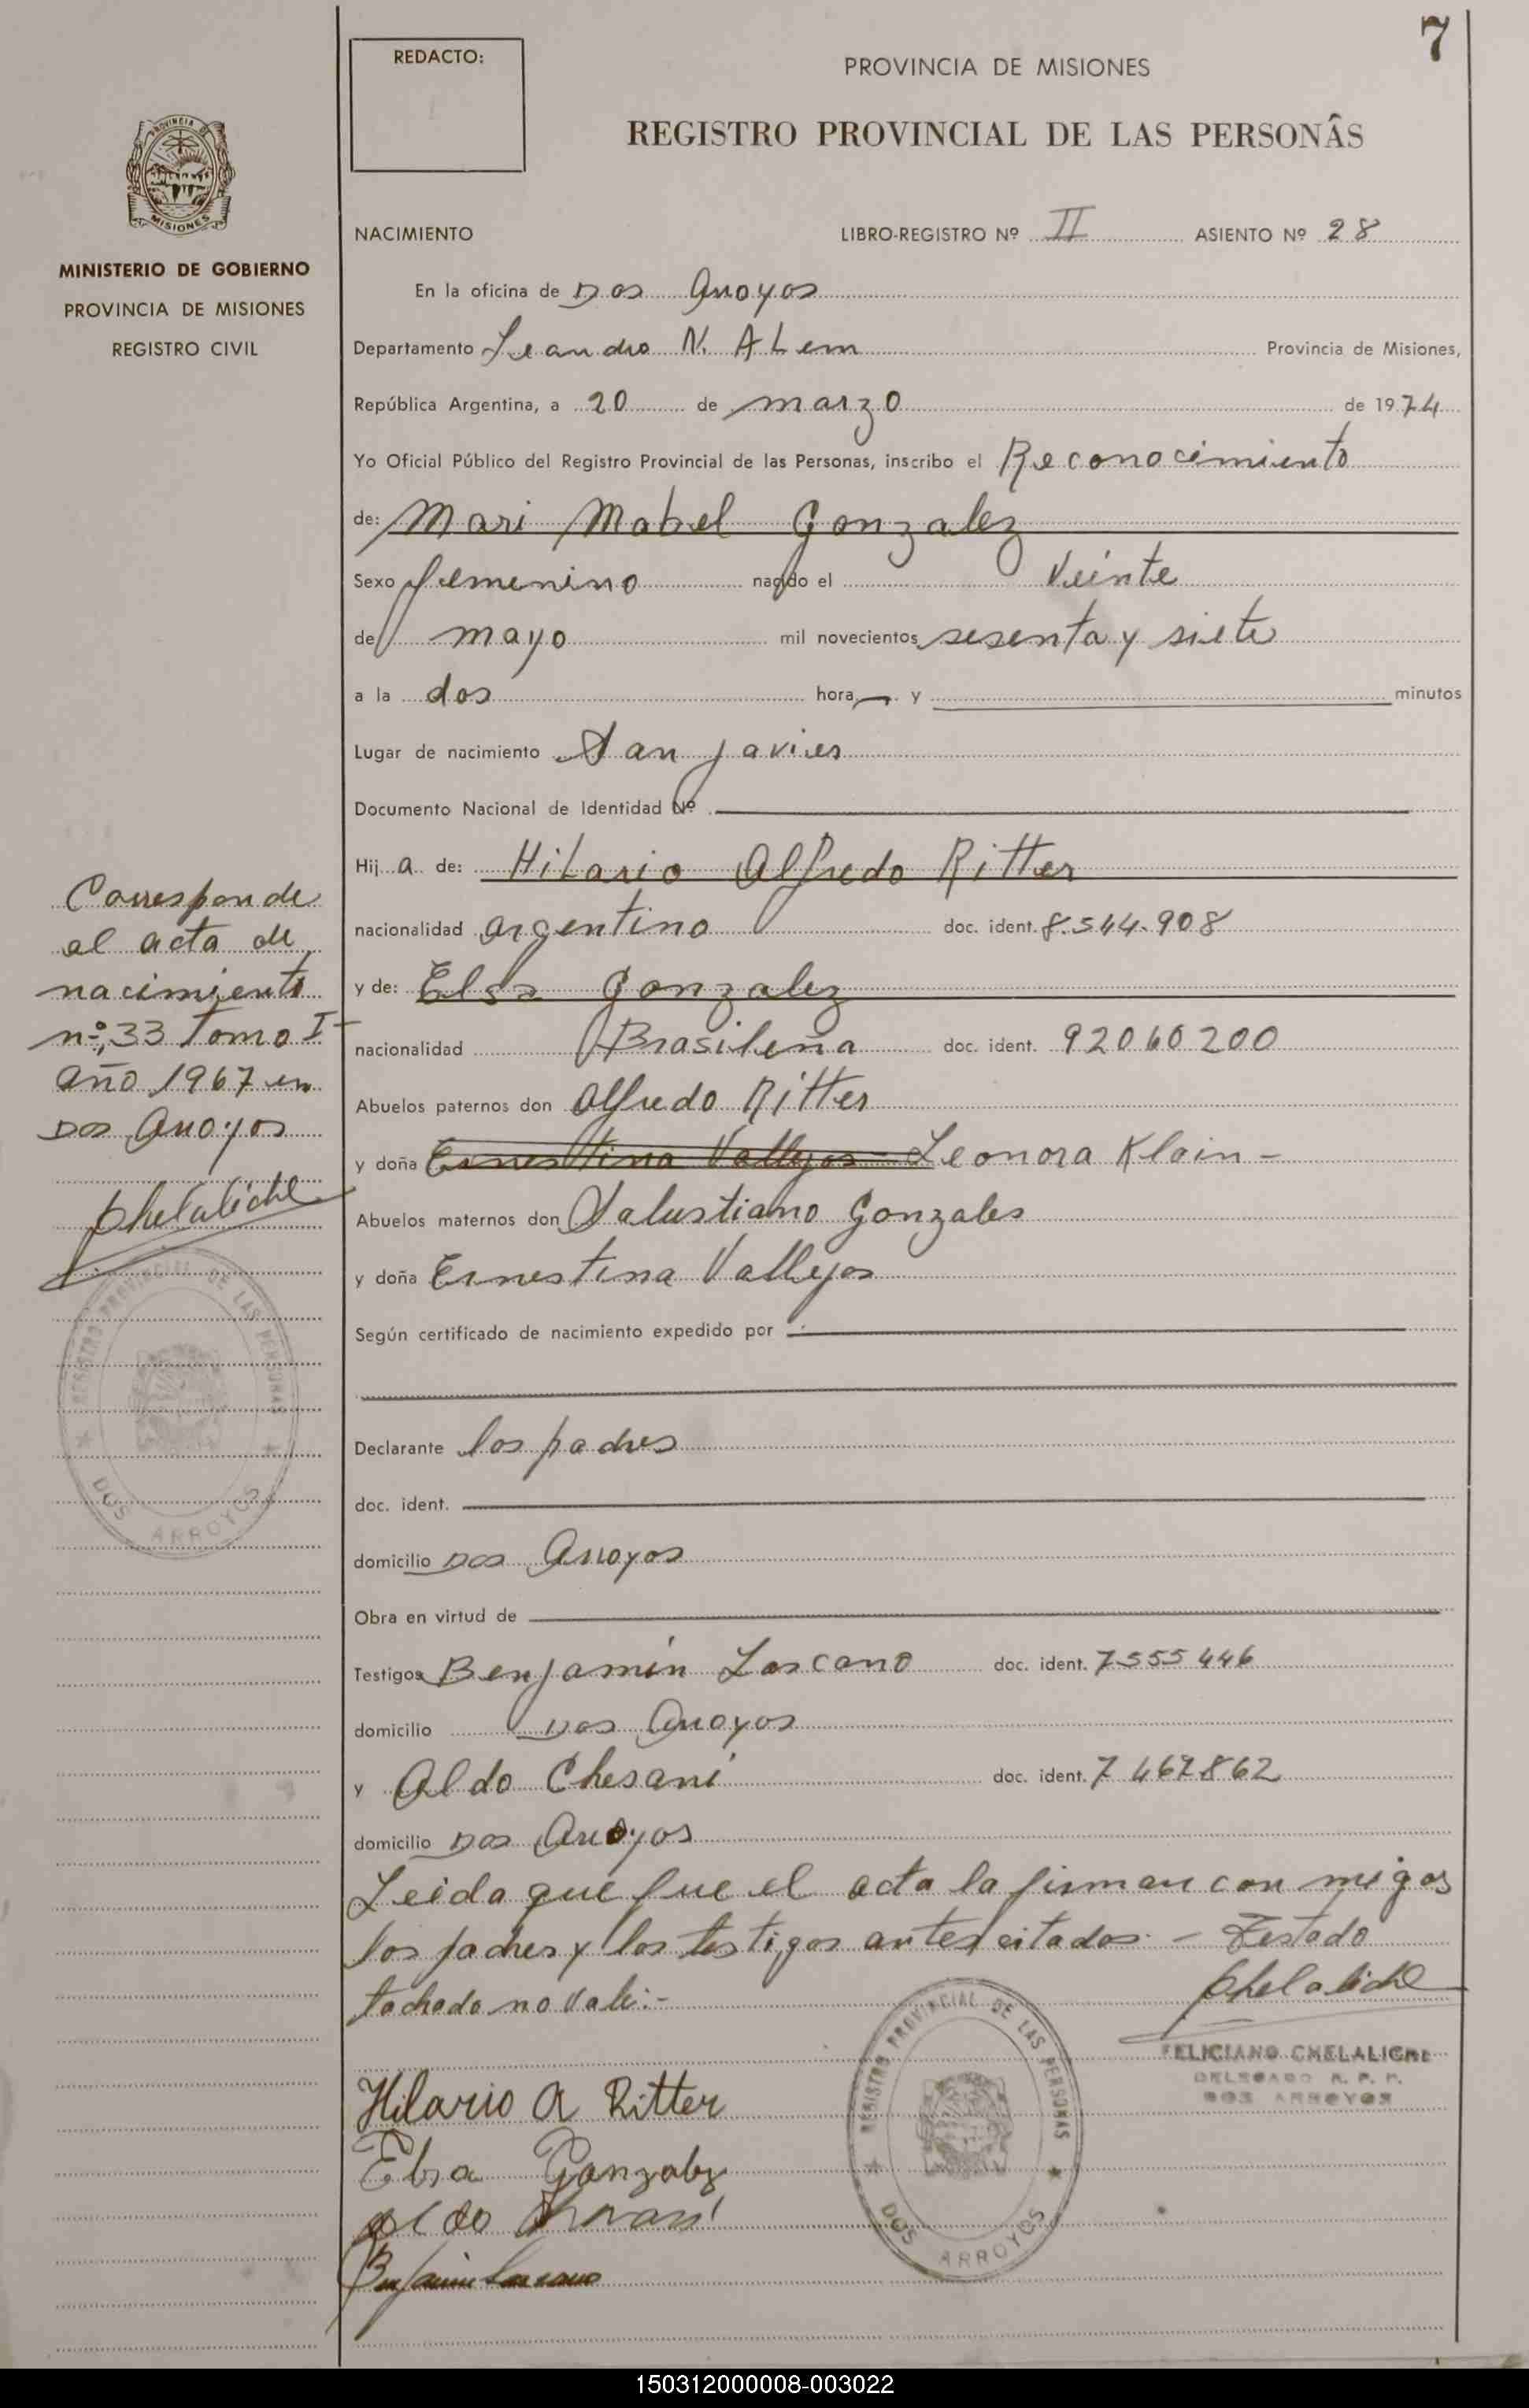 7
REDACTO:
PROVINCIA DE MISIONES
REGISTRO PROVINCIAL DE LAS PERSONAS
PROVINCIA DE
MISIONES
MINISTERIO DE GOBIERNO
PROVINCIA DE MISIONES
REGISTRO CIVIL
NACIMIENTO LIBRO-REGISTRO Nº II ASIENTO Nº 28
En la oficina de Dos Arroyos
Departamento Leandro N. ALem Provincia de Misiones,
República Argentina, a 20 de marzo de 1974
Yo Oficial Público del Registro Provincial de las Personas, inscribo el Reconocimiento
de: Mari Mabel Gonzalez
Sexo femenino nacido el Veinte
de mayo mil novecientos sesenta y siete
a la dos hora — y minutos
Lugar de nacimiento San Javier
Documento Nacional de Identidad Nº
Hij a de: HiLario Alfredo Ritter
nacionalidad argentino doc. ident. 8.544.908
y de: Elsa Gonzalez
nacionalidad Brasileña doc. ident. 92060200
Abuelos paternos don Alfredo Ritter
y doña Ernestina Vallejos Leonora Klain -
Abuelos maternos don Salustiano Gonzales
y doña Ernestina Vallejos
Según certificado de nacimiento expedido por
Declarante los padres
doc. ident.
domicilio Dos Arroyos
Obra en virtud de
Testigos Benjamín Loscano doc. ident. 7555446
domicilio Dos Arroyos
y Aldo Chesani doc. ident. 7467862
domicilio Dos Arroyos
Leida que fue el acta la firman con migos
los padres y los testigos antes citados. - Testado
tachado no vale:-
Corresponde
al acta de
nacimiento
nº 33 Tomo I
año 1967 en
Dos Arroyos
Chelaliche
REGISTRO PROVINCIAL DE LAS PERSONAS
DOS ARROYOS
Chelaliche
FELICIANO CHELALICHE
DELEGADO R. P. P.
DOS ARROYOS
REGISTRO PROVINCIAL DE LAS PERSONAS
DOS ARROYOS
Hilario A Ritter
Elsa Gonzalez
aldo
Benjamin Loscano
150312000008-003022